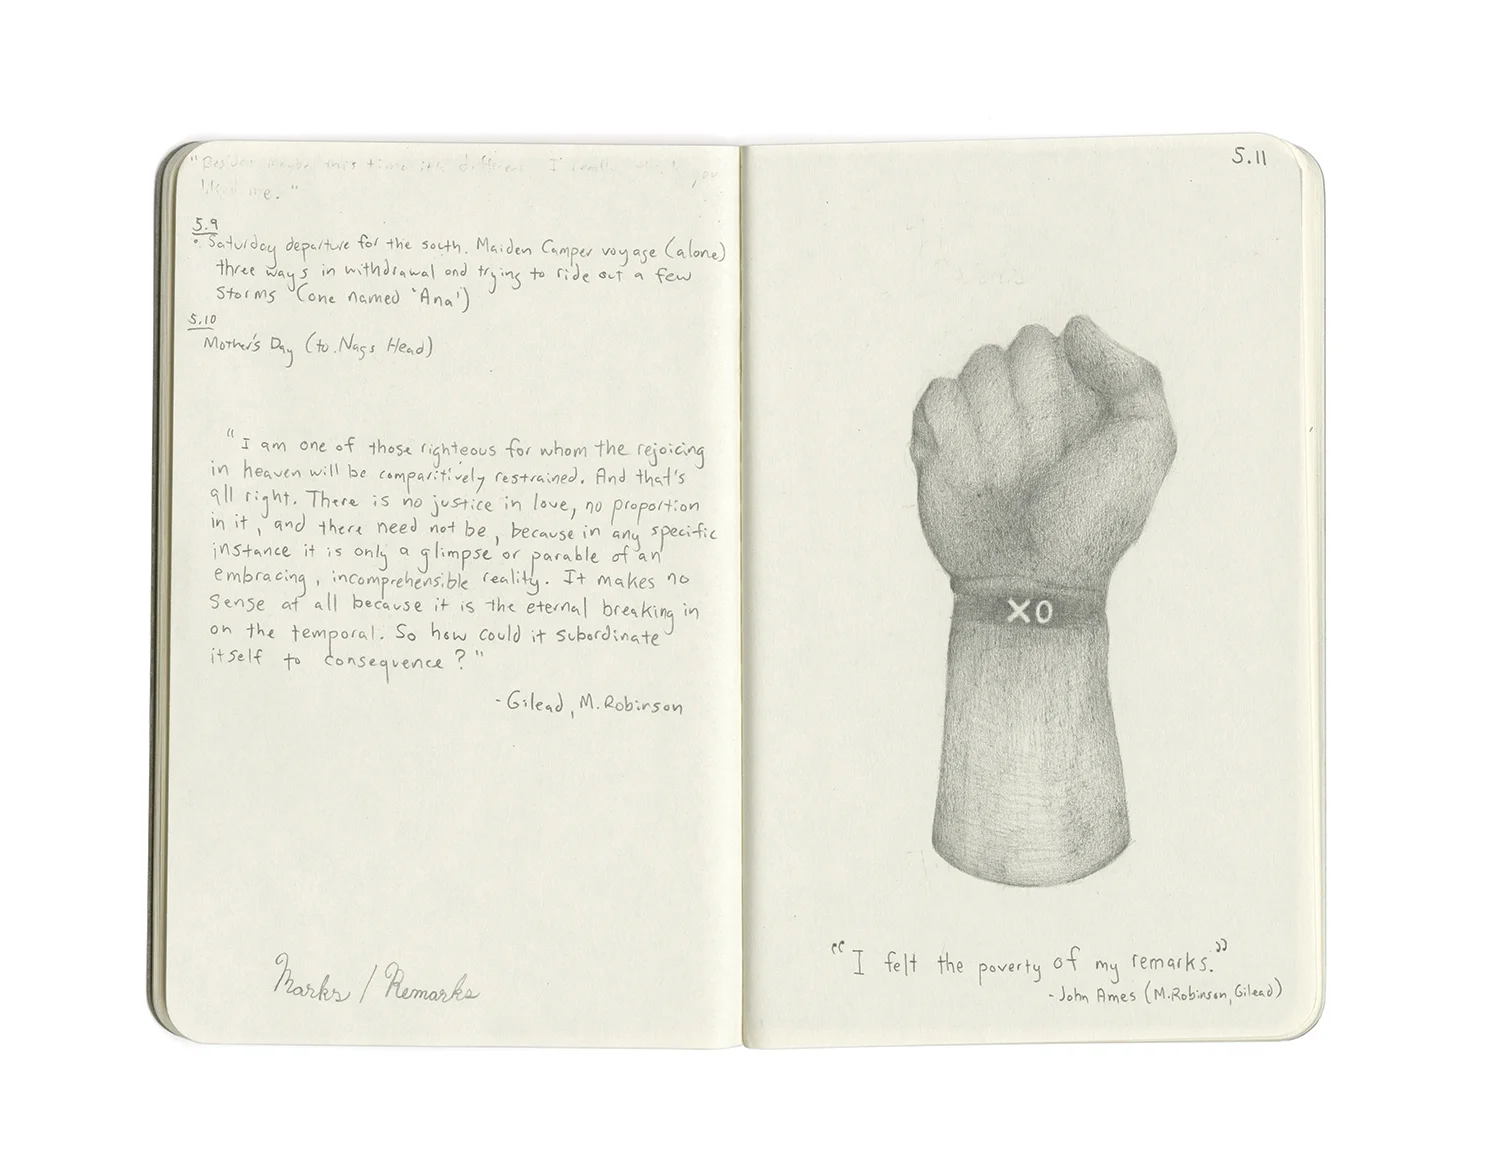 "Besides maybe this time it's different. I really think you
liked me."
5.9
• Saturday departure for the south. Maiden Camper voyage (alone)
three ways in withdrawal and trying to ride out a few
storms (one named 'Ana')
5.10
Mother's Day (to Nags Head)
"I am one of those righteous for whom the rejoicing
in heaven will be comparitively restrained. And that's
all right. There is no justice in love, no proportion
in it, and there need not be, because in any specific
instance it is only a glimpse or parable of an
embracing, incomprehensible reality. It makes no
sense at all because it is the eternal breaking in
on the temporal. So how could it subordinate
itself to consequence?"
- Gilead, M. Robinson
Marks / Remarks
5.11
XO
"I felt the poverty of my remarks."
- John Ames (M. Robinson, Gilead)